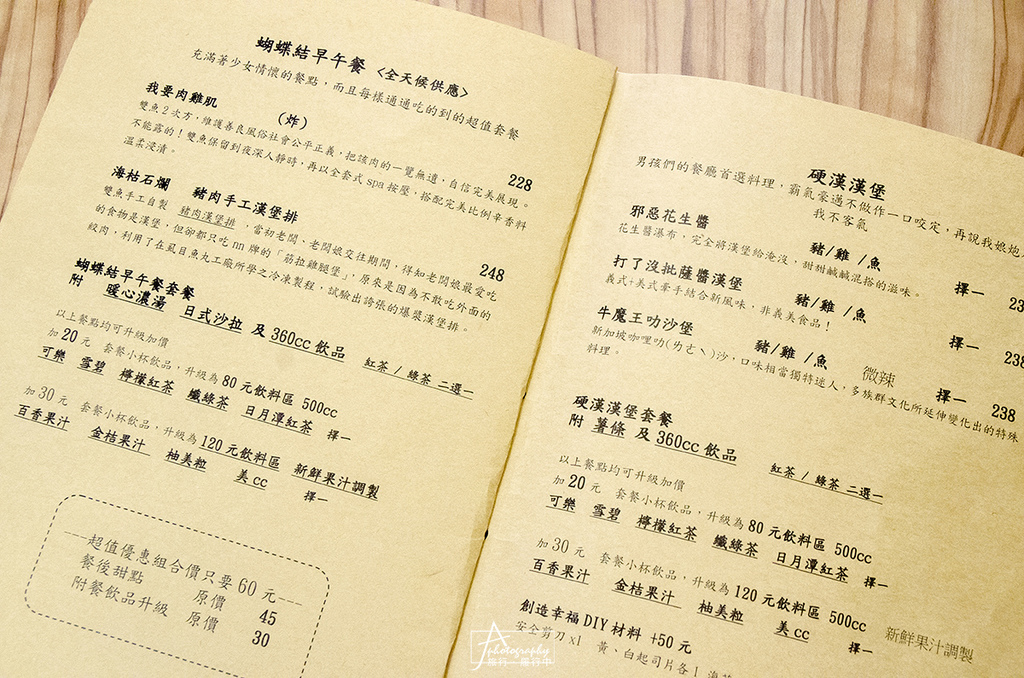 蝴蝶結早午餐 <全天候供應>
充滿著少女情懷的餐點，而且每樣通通吃的到的超值套餐
我要肉雞肌 (炸) 228
雙魚2次方，維護善良風俗社會公平正義，把該肉的一覽無遺，自信完美展現。
不能露的！雙魚保留到夜深人靜時，再以全套式spa按壓，搭配完美比例辛香料
溫柔浸漬。
海枯石爛 豬肉手工漢堡排 248
雙魚手工自製 豬肉漢堡排，當初老闆、老闆娘交往期間，得知老闆娘最愛吃
的食物是漢堡，但卻都只吃nn牌的「筋拉雞腿堡」，原來是因為不敢吃外面的
絞肉，利用了在虱目魚丸工廠所學之冷凍製程，試驗出誇張的爆漿漢堡排。
蝴蝶結早午餐套餐
附 暖心濃湯 日式沙拉 及360cc飲品 紅茶/綠茶 二選一
以上餐點均可升級加價
加20元 套餐小杯飲品，升級為80元飲料區 500cc
可樂 雪碧 檸檬紅茶 纖綠茶 日月潭紅茶 擇一
加30元 套餐小杯飲品，升級為120元飲料區 新鮮果汁調製
百香果汁 金桔果汁 柚美粒 美cc 擇一
---超值優惠組合價只要60元---
餐後甜點 原價 45
附餐飲品升級 原價 30
硬漢漢堡
男孩們的餐廳首選料理，霸氣豪邁不做作一口咬定，再說我娘炮
我不客氣
邪惡花生醬 豬/雞/魚 擇一
花生醬瀑布，完全將漢堡給淹沒，甜甜鹹鹹混搭的滋味。
打了沒批薩醬漢堡 豬/雞/魚 擇一 238
義式+美式牽手結合新風味，非義美食品！
牛魔王叻沙堡 豬/雞/魚 微辣 擇一 238
新加坡咖哩叻(ㄌㄜˋ)沙，口味相當獨特迷人，多族群文化所延伸變化出的特殊
料理。
硬漢漢堡套餐
附 薯條 及360cc飲品 紅茶/綠茶 二選一
以上餐點均可升級加價
加20元 套餐小杯飲品，升級為80元飲料區 500cc
可樂 雪碧 檸檬紅茶 纖綠茶 日月潭紅茶 擇一
加30元 套餐小杯飲品，升級為120元飲料區 500cc
百香果汁 金桔果汁 柚美粒 美cc 擇一 新鮮果汁調製
創造幸福DIY材料 +50元
安全剪刀x1 黃、白起司片各1
photography